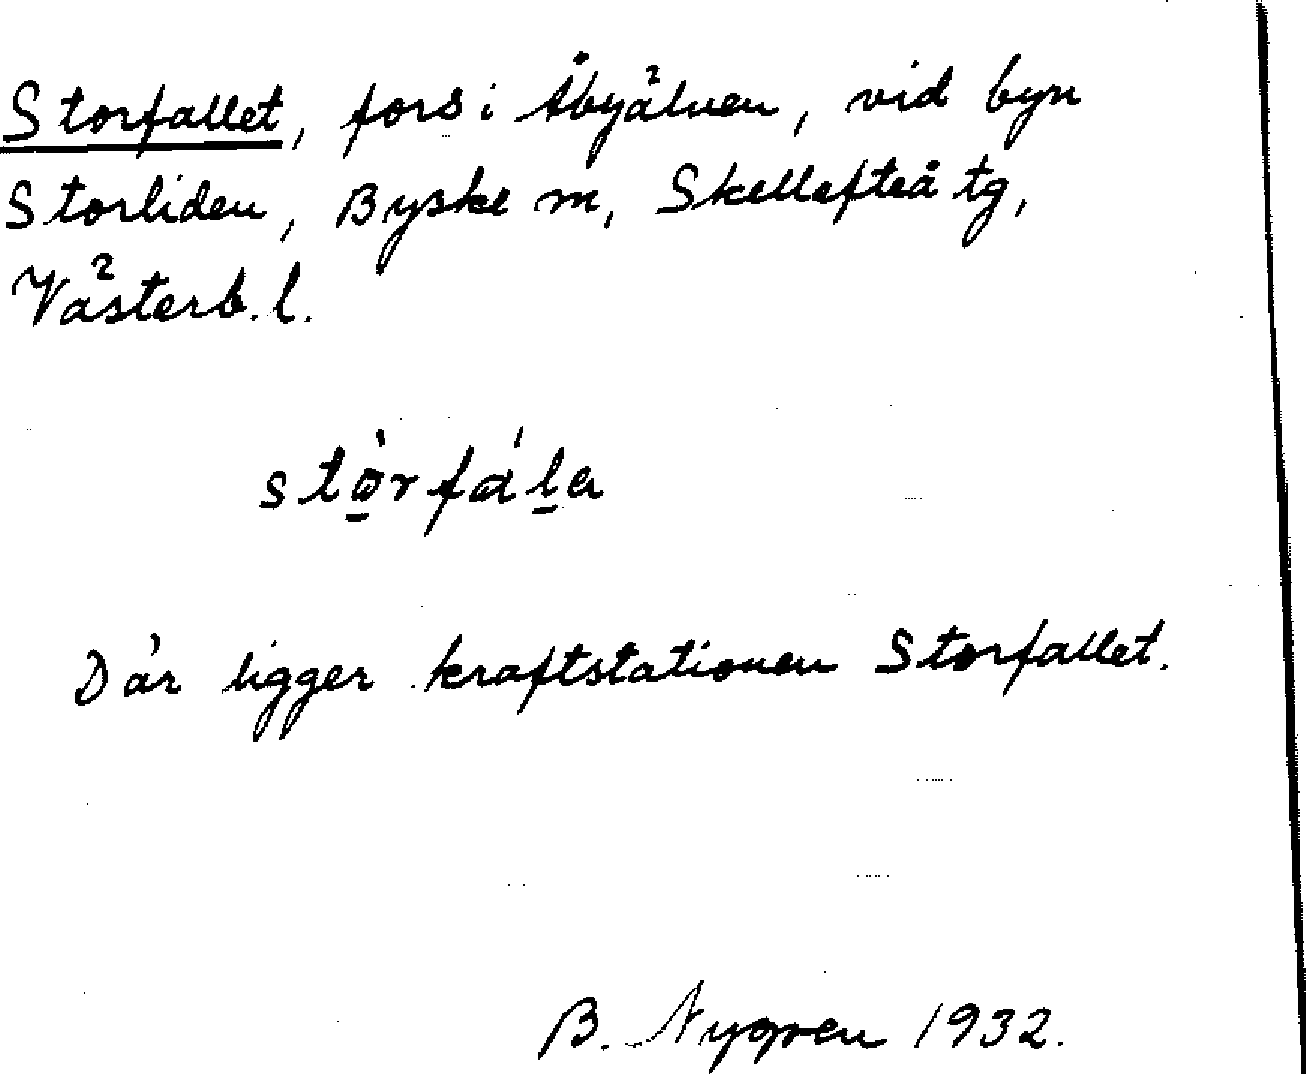 Storfallet, fors i Åbyälven, vid byn
Storliden, Byske m, Skellefteå tg,
Västerb. l.
stø̱̀rfáḻa
Där ligger kraftstationen Storfallet.
B. Nygren 1932.